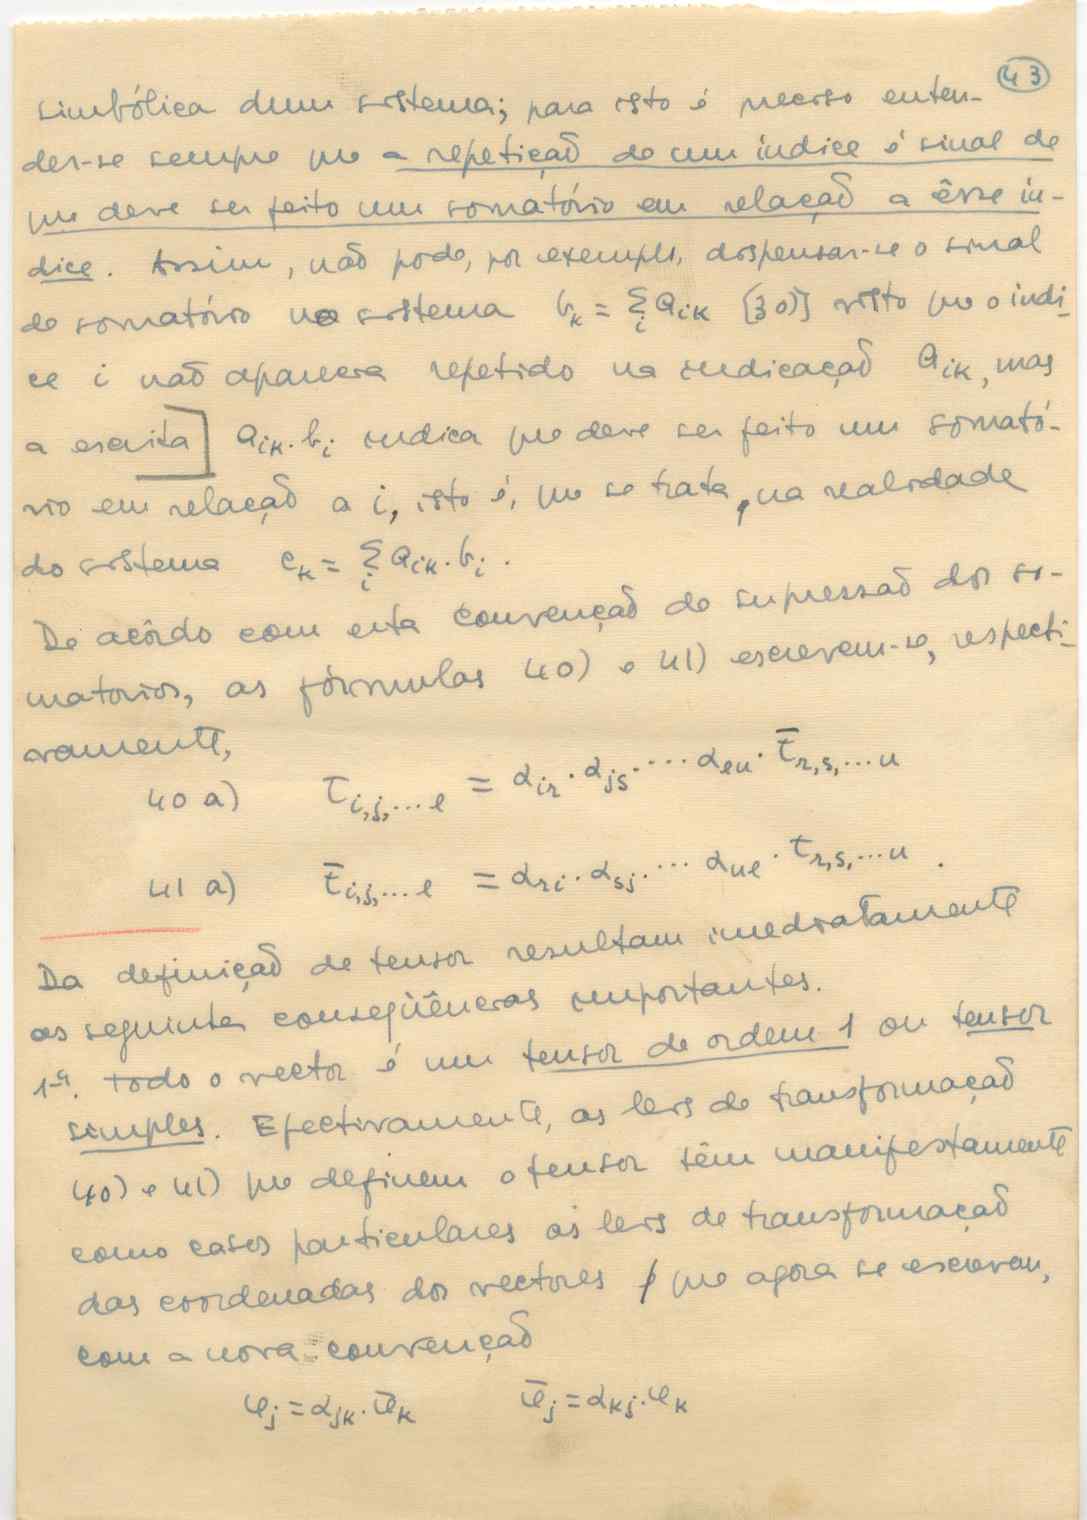 43
simbólica dum sistema; para isto é preciso enten-
der-se sempre que a repetição de um índice é sinal de
que deve ser feito um somatório em relação a êsse ín-
dice. Assim, não pode, por exemplo, dispensar-se o sinal
de somatório no sistema b_k = Σ_i a_ik [30)] visto que o índi-
ce i não aparece repetido na indicação a_ik, mas
a escrita] a_ik . b_i indica que deve ser feito um somató-
rio em relação a i, isto é, que se trata, na realidade
do sistema c_k = Σ_i a_ik . b_i .
De acôrdo com esta convenção de supressão dos so-
matórios, as fórmulas 40) e 41) escrevem-se, respecti-
vamente,
40 a) t_i,j,...l = α_ir . α_js . ... α_lu . t̄_r,s,...u
41 a) t̄_i,j,...l = α_ri . α_sj . ... α_ul . t_r,s,...u .
Da definição de tensor resultam imediatamente
as seguintes conseqüências importantes.
1ª. Todo o vector é um tensor de ordem 1 ou tensor
simples. Efectivamente, as leis de transformação
40) e 41) que definem o tensor têm manifestamente
como casos particulares as leis de transformação
das coordenadas dos vectores que agora se escrevem,
com a nova convenção
φ_j = α_jk . φ̄_k φ̄_j = α_kj . φ_k